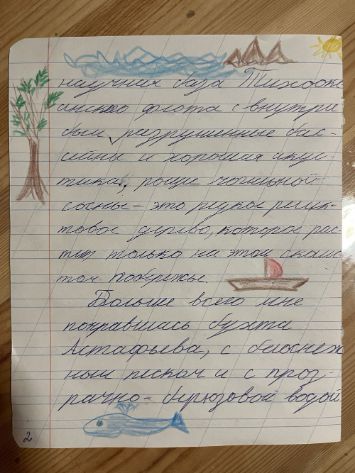 научная база Тихооке
анского флота с внутри
были, разрушенные бас-
сейны и хорошая акус-
тика, роща могильной
сосны - это редкое релик-
товое дерево, которое рас-
тёт только на этом скалис-
том побережье.
Больше всего мне
понравилась бухта
Астафьева, с белоснеж-
ным песком и с проз-
рачно-бирюзовой водой
2